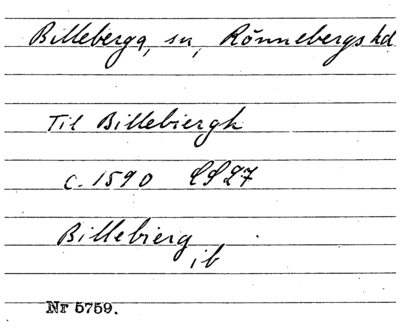 Billeberga, sn, Rönnebergs hd
Til Billebiergh
c. 1590 LS 27
Billebierg ib
Nr 5759.